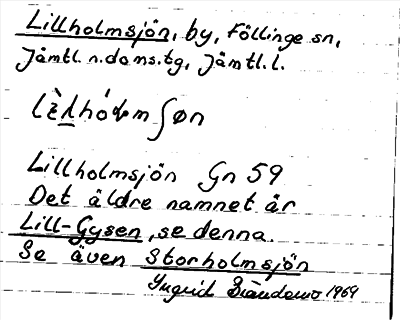 Lillholmsjön, by, Föllinge sn,
Jämtl. n. doms. tg, Jämtl. l.
Lillholmsjön Gn 59
Det äldre namnet är
Lill-Gysen, se denna.
Se även Storholmsjön
Ingrid 1969